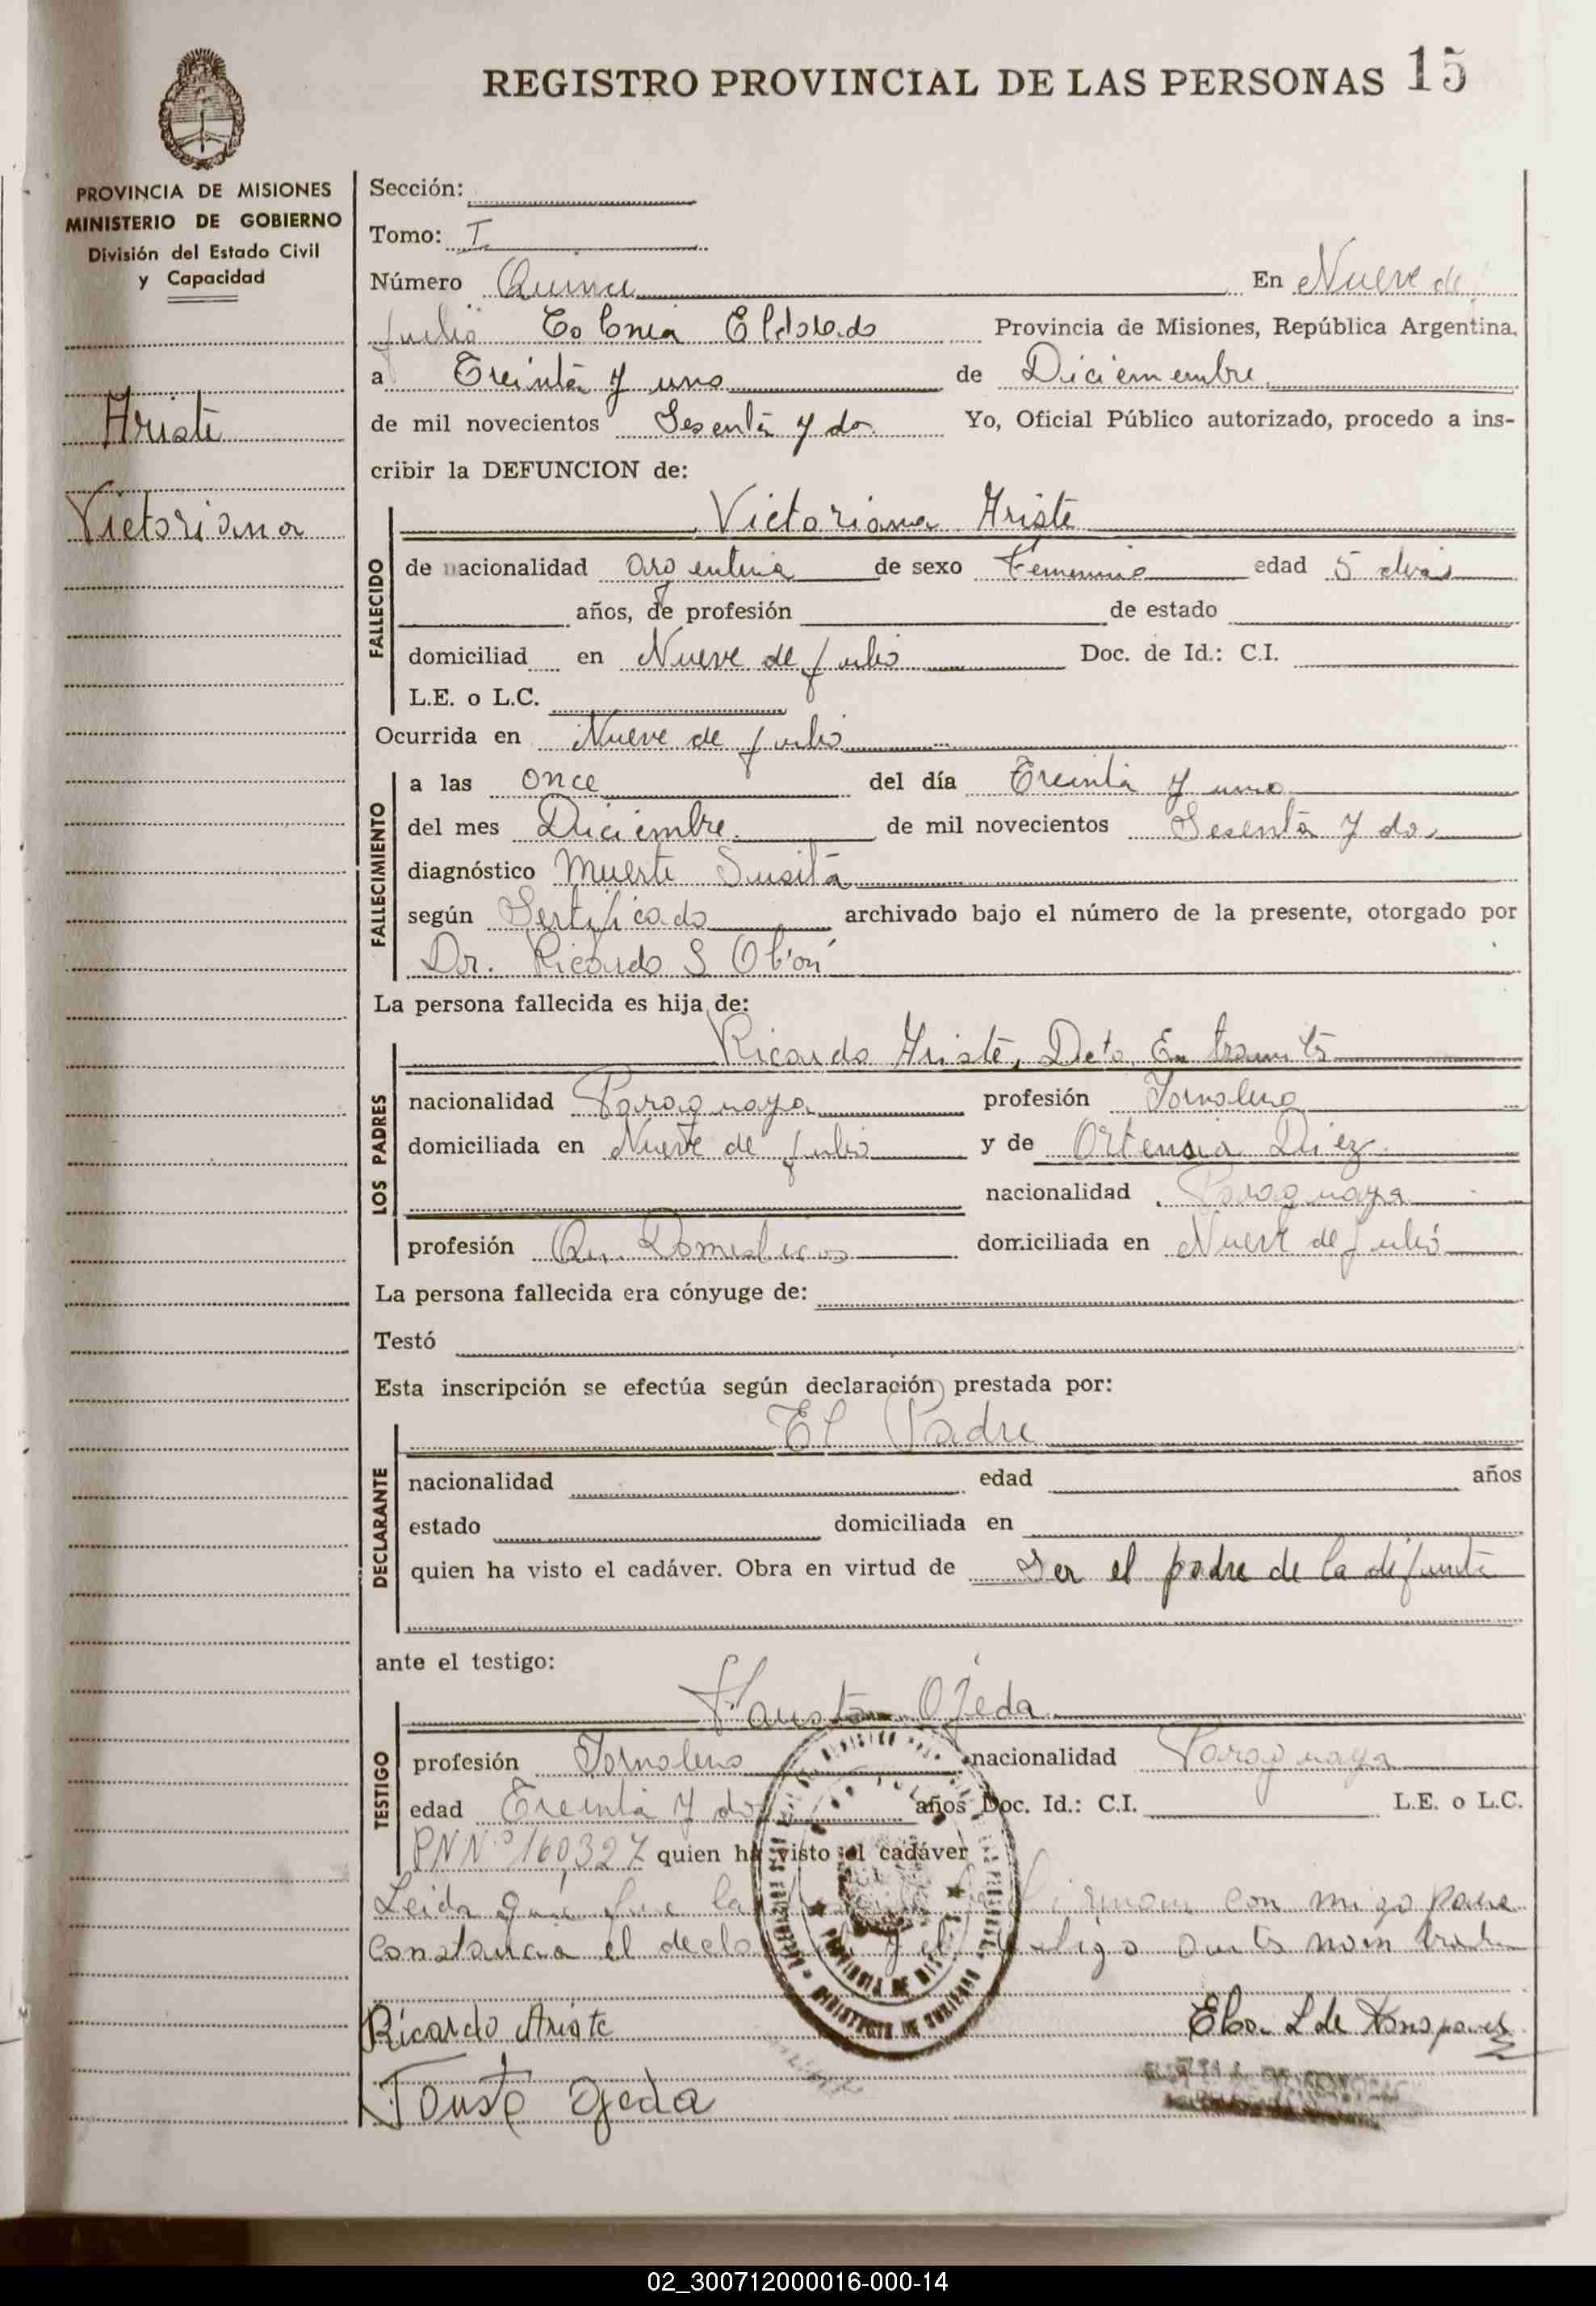 REGISTRO PROVINCIAL DE LAS PERSONAS 15
PROVINCIA DE MISIONES
MINISTERIO DE GOBIERNO
División del Estado Civil
y Capacidad
Ariste
Victoriana
Sección:
Tomo: I
Número Quince En Nueve de
Julio Colonia Eldorado Provincia de Misiones, República Argentina,
a Treinta y uno de Diciemembre
de mil novecientos Sesenta y dos Yo, Oficial Público autorizado, procedo a ins-
cribir la DEFUNCION de:
Victoriana Ariste
FALLECIDO
de nacionalidad argentina de sexo femenino edad 5 dias
años, de profesión de estado
domiciliad en Nueve de Julio Doc. de Id.: C.I.
L.E. o L.C.
Ocurrida en Nueve de Julio
FALLECIMIENTO
a las once del día Treinta y uno
del mes Diciembre de mil novecientos Sesenta y dos
diagnóstico Muerte Susita
según Sertificado archivado bajo el número de la presente, otorgado por
Dr. Ricardo S
La persona fallecida es hija de:
LOS PADRES
Ricardo Ariste, Dcto En tramite
nacionalidad Paraguaya profesión Jornalero
domiciliada en Nueve de Julio y de Ortensia Diez
nacionalidad Paraguaya
profesión Qu. Domesticos domiciliada en Nueve de Julio
La persona fallecida era cónyuge de:
Testó
Esta inscripción se efectúa según declaración prestada por:
DECLARANTE
El Padre
nacionalidad edad años
estado domiciliada en
quien ha visto el cadáver. Obra en virtud de Ser el padre de la difunta
ante el testigo:
TESTIGO
Fausto Ojeda
profesión Jornalero nacionalidad Paraguaya
edad Treinta y dos años Doc. Id.: C.I. L.E. o L.C.
PN Nº 160,327 quien ha visto el cadáver
Leida que fue la firman con migo para
constancia el y el testigo antes nombrado
Ricardo Ariste
Fausto Ojeda
PROVINCIA DE
MINISTERIO DE GOBIERNO
02_300712000016-000-14